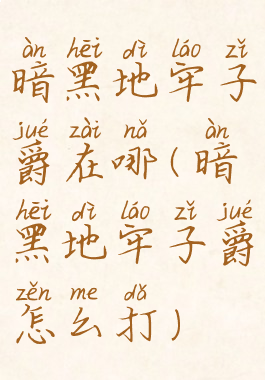 àn hēi dì láo zǐ
暗黑地牢子
jué zài nǎ àn
爵在哪(暗
hēi dì láo zǐ jué
黑地牢子爵
zěn me dǎ
怎么打)